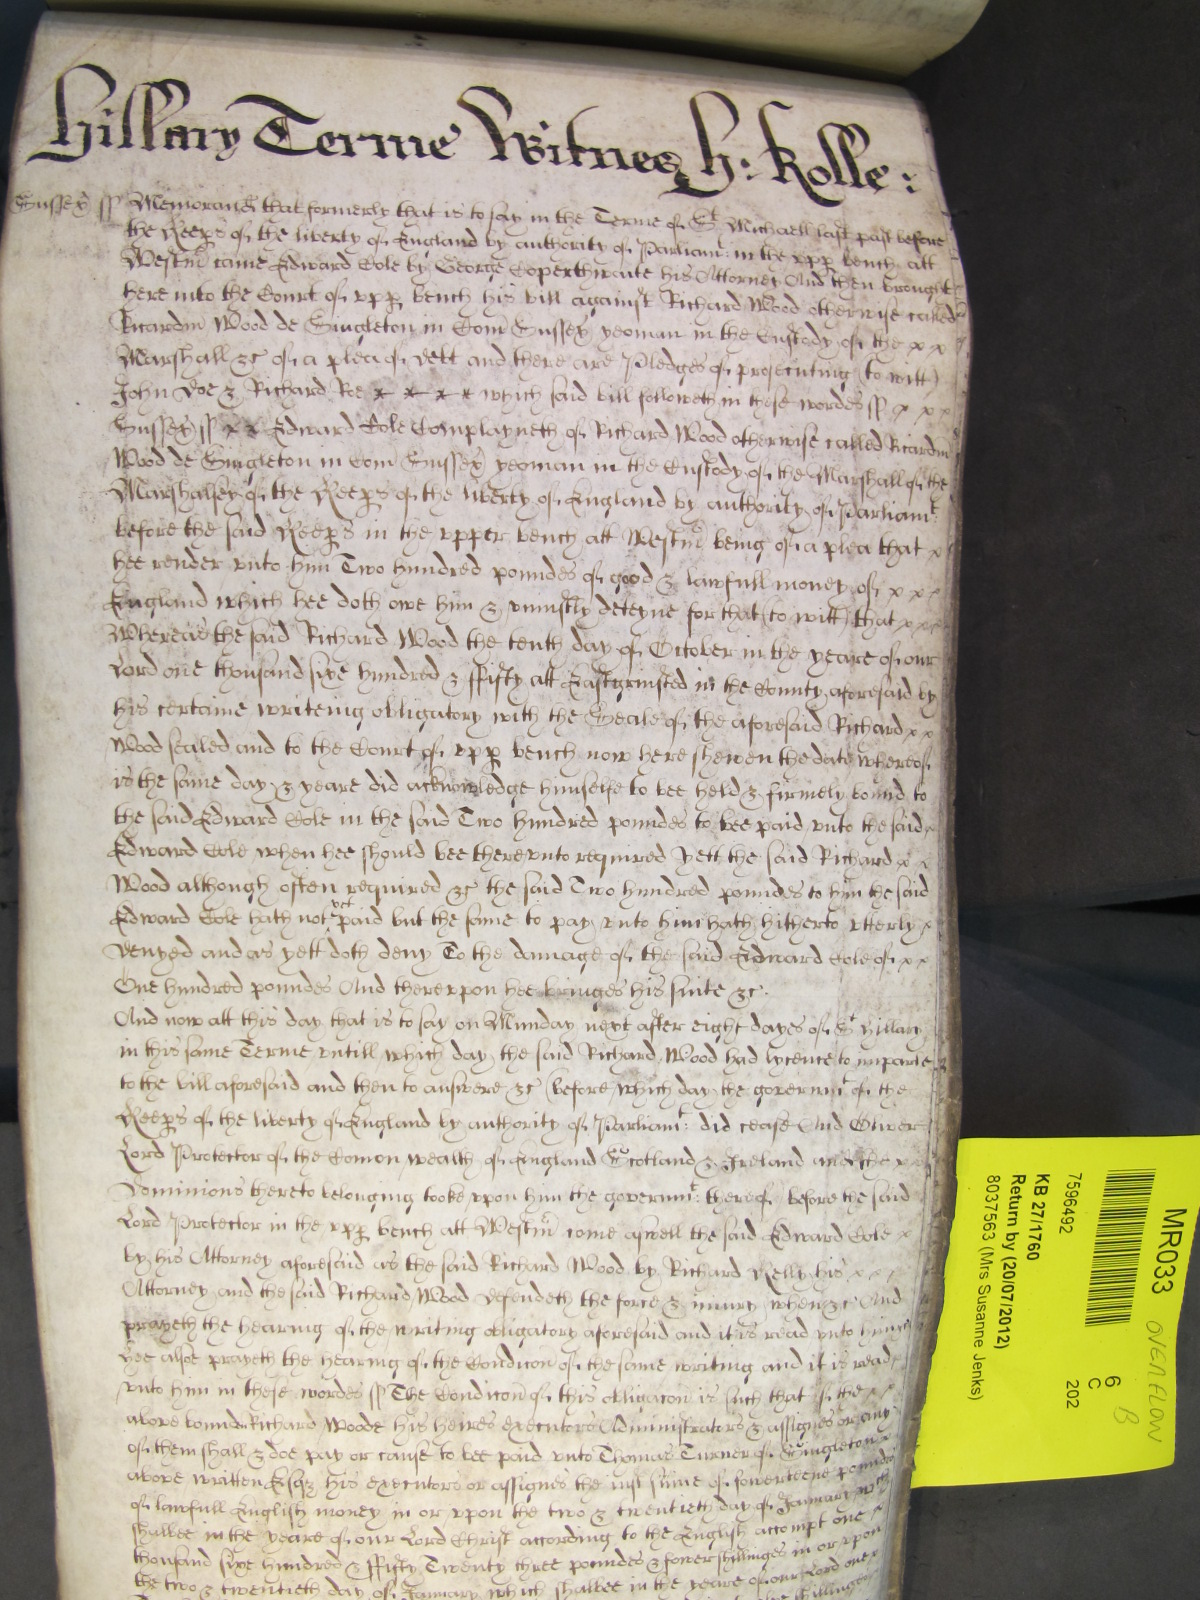 Hillary Terme Witnes H: Rolle:
Sussex ss Memorand that formerly that is to say in the Terme of St Michaell last past before
the Keeps of the liberty of England by authority of Parliamt: in the upp bench att
Westm came Edward Cole by George Coperthwaite his Attorney And then brought
here into the Court of upp bench his bill against Richard Wood otherwise called
Ricardm Wood de Singleton in Com Sussex yeoman in the Custody of the x x
Marshall &c of a plea of debt and there are Pledges of prosecuting (to witt)
John Doe & Richard Roe x x x x which said bill followeth in these wordes ss x x x
Sussex ss x x Edward Cole Complayneth of Richard Wood otherwise called Ricardm
Wood de Singleton in Com Sussex yeoman in the Custody of the Marshall of the
Marshalsey of the Keeps of the liberty of England by authority of Parliamt:
before the said Keeps in the upper bench att Westm being of a plea that x
hee render unto him Two hundred poundes of good & lawfull money of x x x
England which hee doth owe him & uniustly deteyne for that (to witt) that x x x
Whereas the said Richard Wood the tenth day of October in the yeare of our
Lord one thousand sixe hundred & ffifty att Eastgrinsted in the County aforesaid by
his certaine writeing obligatory with the Seale of the aforesaid Richard x x
Wood sealed and to the Court of upp bench now here shewen the date whereof
is the same day & yeare did acknowledge himselfe to bee held & firmely bound to
the said Edward Cole in the said Two hundred poundes to bee paid unto the said x
Edward Cole when hee should bee thereunto required Yett the said Richard x x
Wood although often required &c the said Two hundred poundes to him the said
Edward Cole hath not yet paid but the same to pay unto him hath hitherto utterly x
denyed and as yett doth deny To the damage of the said Edward Cole of x x
One hundred poundes And thereupon hee bringes his suite &c.
And now att this day that is to say on Munday next after eight dayes of St Hillary
in this same Terme untill which day the said Richard Wood had lycence to imparle
to the bill aforesaid and then to answere &c (before which day the governmt of the
Keeps of the liberty of England by authority of Parliamt: did cease And Oliver
Lord Protector of the Comon wealth of England Scotland & Ireland and the x x
Dominions thereto belonging tooke upon him the governmt: thereof) before the said
Lord Protector in the upp bench att Westm come aswell the said Edward Cole x
by his Attorney aforesaid as the said Richard Wood by Richard Kelly his x x x
Attorney and the said Richard Wood defendeth the force & iniury when &c And
prayeth the hearing of the writing obligatory aforesaid and it is read unto him x
hee alsoe prayeth the hearing of the Condicon of the same writing and it is read
unto him in these wordes ss The Condicon of this obligacon is such that if the x x
above bound Richard Woode his heires executors Administrators & assignes or any
of them shall & doe pay or cause to bee paid unto Thomas Turner of Singleton
above written Esq his executors or assignes the iust sume of fowerteene poundes
of lawfull English money in or upon the two & twentieth day of January wch
shallbe in the yeare of our Lord Christ according to the English accompt one x
thousand sixe hundred & ffifty Twenty three poundes & fower shillinges in or upon
the two & twentieth day of January which shallbe in the yeare of our Lord one x
MR033
OVERFLOW
B
6
C
202
7596492
KB 27/1760
Return by (20/07/2012)
8037563 (Mrs Susanne Jenks)